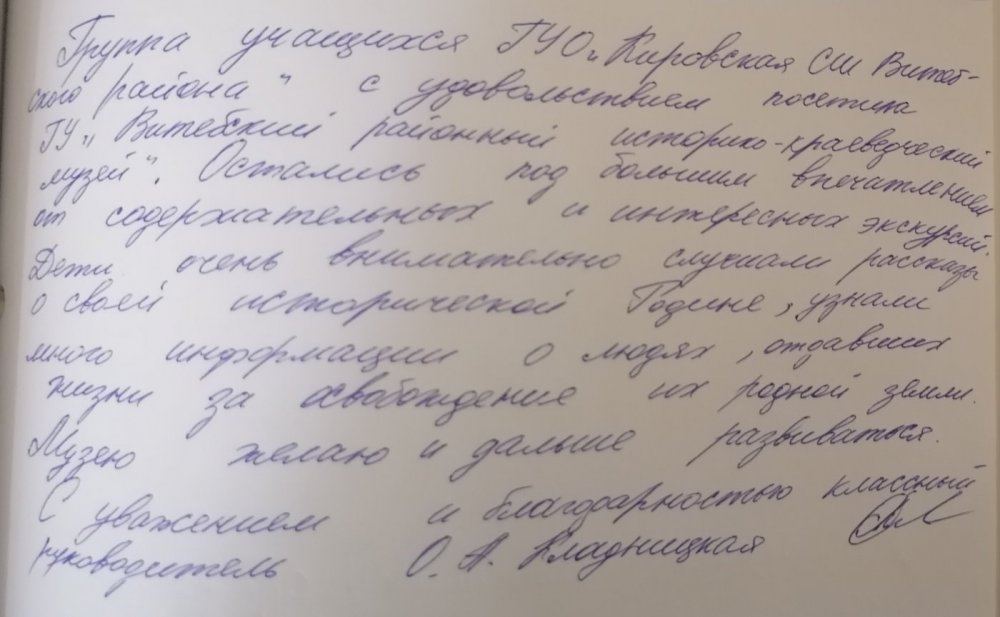 Группа учащихся ГУО „Кировская СШ Витеб-
ского района“ с удовольствием посетила
ГУ „Витебский районный историко-краеведческий
музей“. Остались под большим впечатлением
от содержательных и интересных экскурсий.
Дети очень внимательно слушали рассказы
о своей исторической Родине, узнали
много информации о людях, отдавших
жизни за освобождение их родной земли.
Музею желаю и дальше развиваться.
С уважением и благодарностью классный
руководитель О. А. Кладницкая